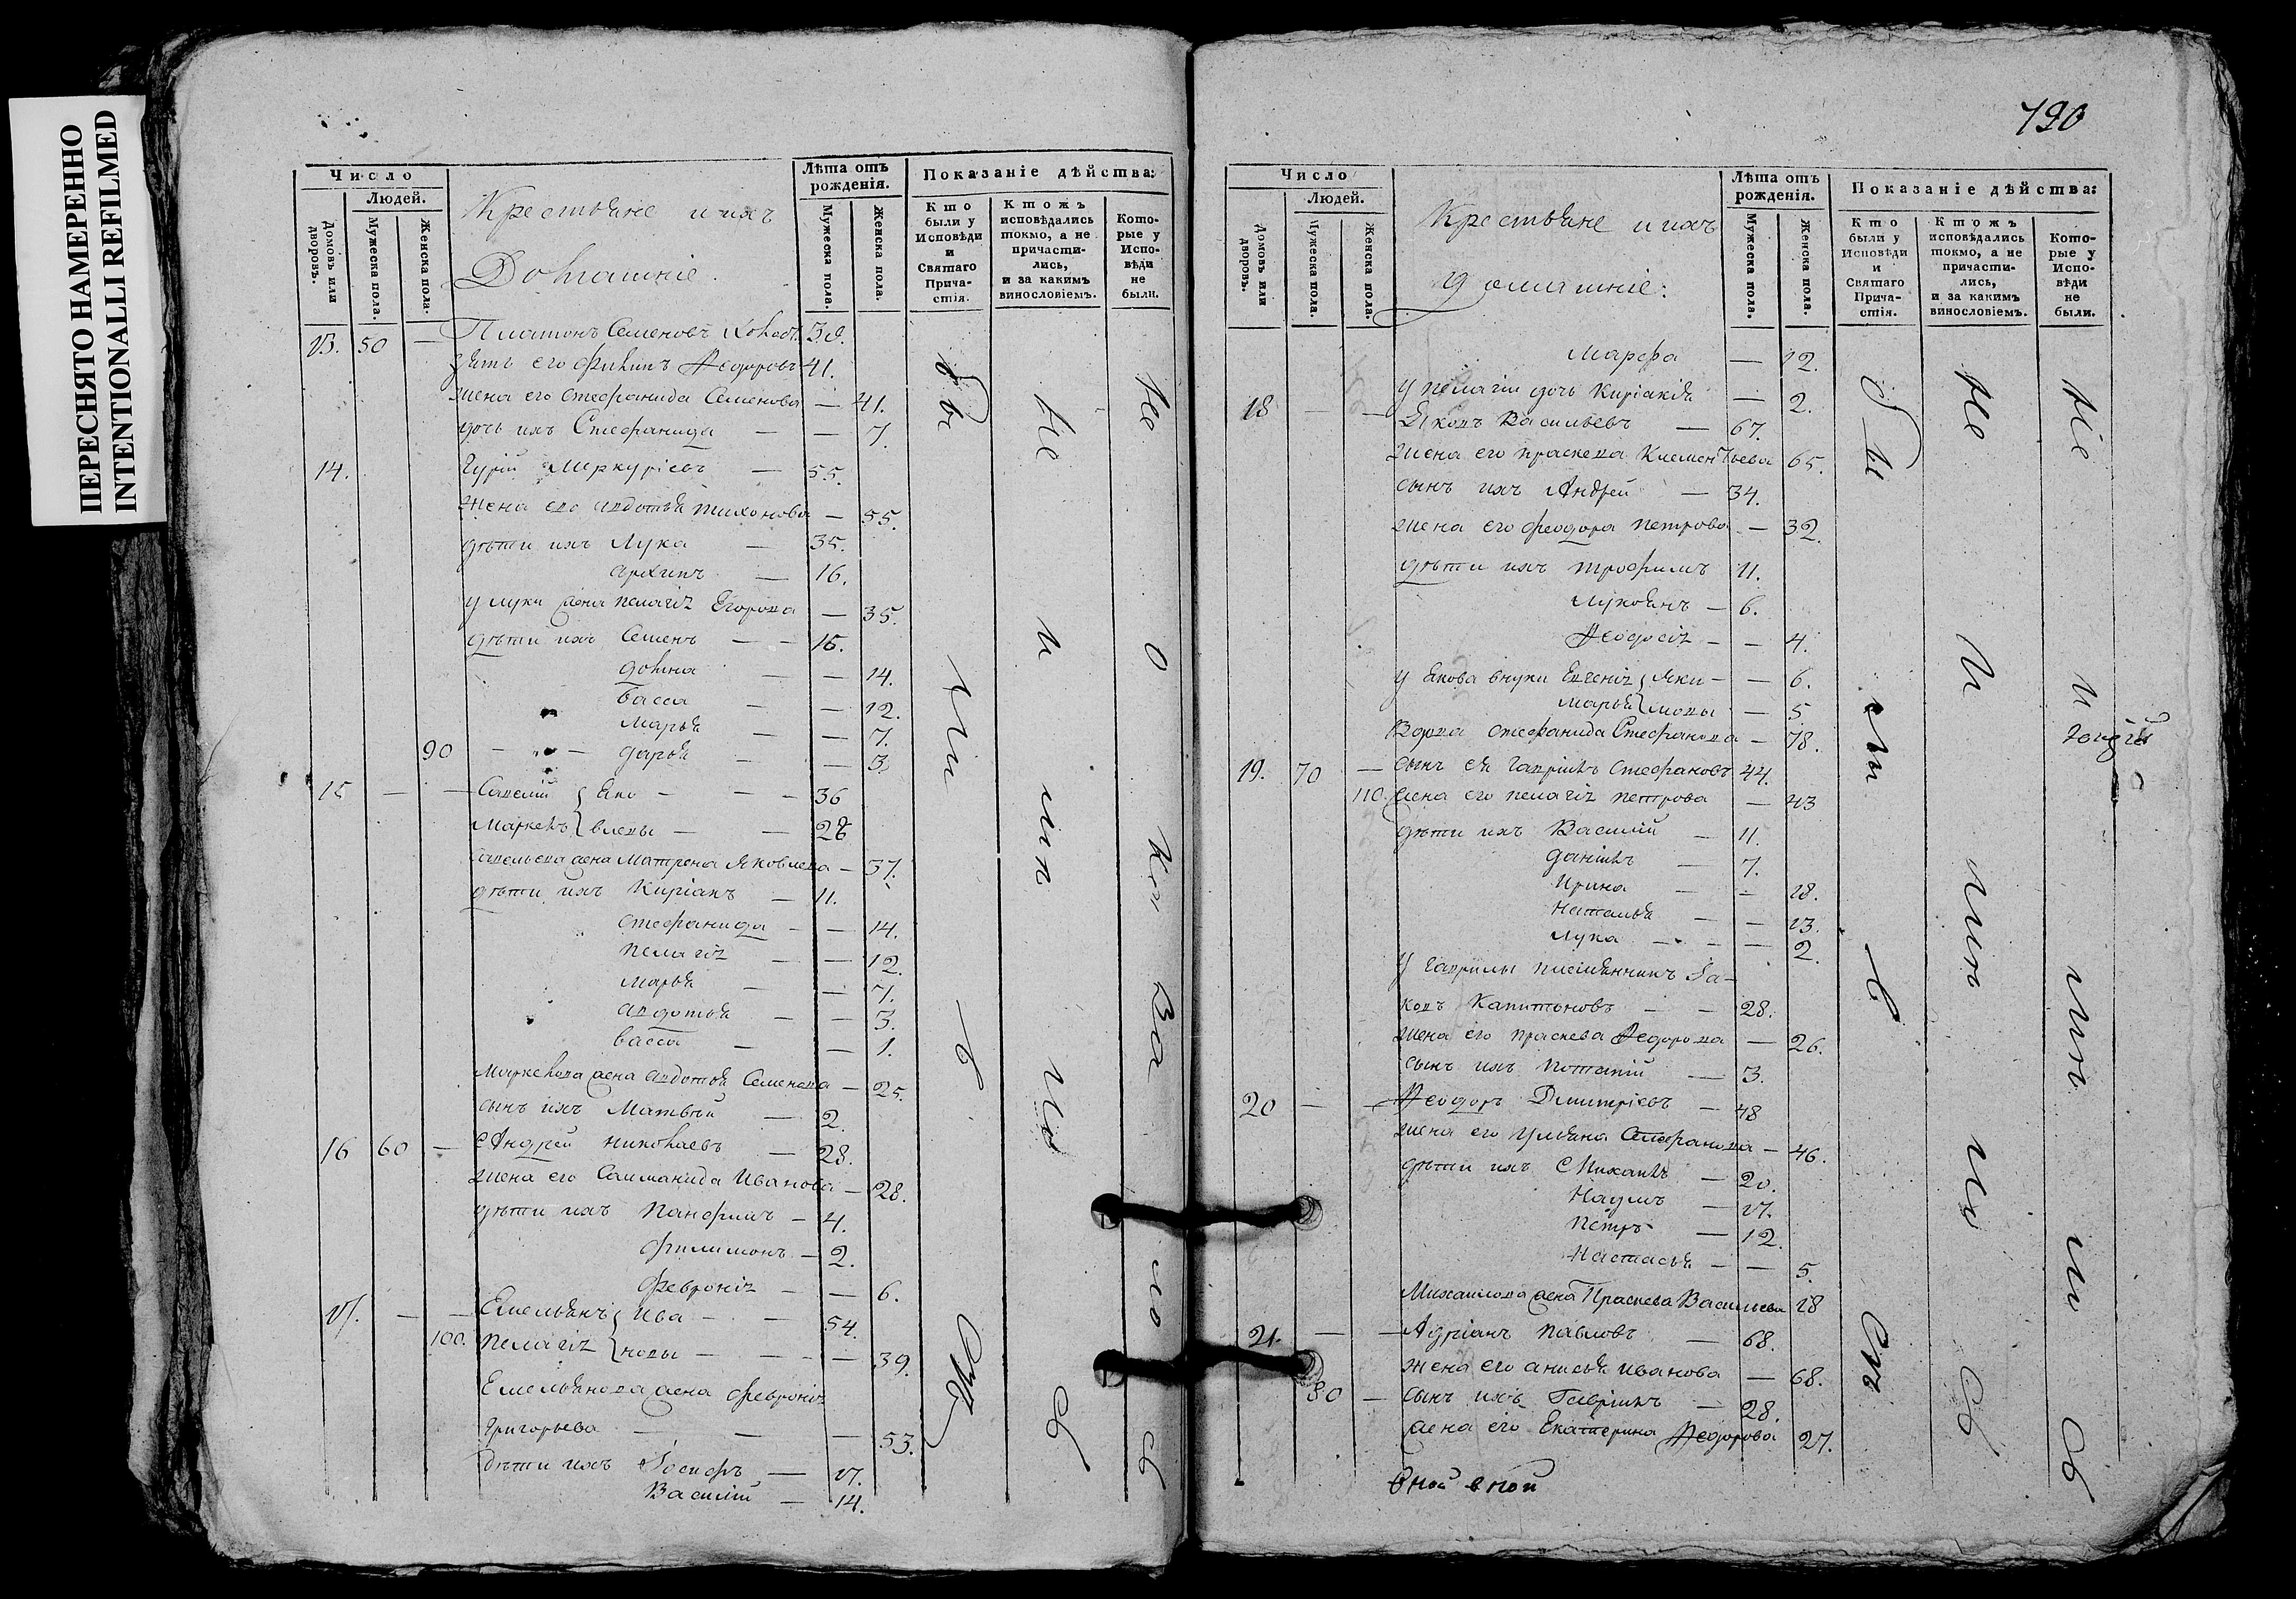 ПЕРЕСНЯТО НАМЕРЕННО
INTENTIONALLI REFILMED
Число
Людей.
Домовъ или дворовъ.
Мужеска пола.
Женска пола.
Крестьяне и ихъ
Домашніе.
Лѣта отъ рожденія.
Мужеска пола.
Женска пола.
Показаніе дѣйства:
Кто были у Исповѣди и Святаго Прича-стія.
Ктожъ исповѣдались токмо, а не причасти-лись, и за какимъ винословіемъ.
Кото-рые у Испо-вѣди не были.
13. 50 — Платонъ Семеновъ 39.
зять его Филипъ Федоровъ 41.
жена его Стефанида Семенова — 41.
дочь ихъ Стефанида — — 7.
14. Гурій Меркуріевъ — 55.
жена его авдотья тихонова — 55.
дѣти ихъ Лука — 35.
архипъ — 16.
у луки жена пелагія Егорова — 35.
дѣти ихъ Семенъ — — 15.
домна — — 14.
васса — — 12.
марья — — 7.
90 — — дарья — — 3.
15 — — Савелій Яко — — — 36
Маркелъ влевы — — 28
Савельева жена Матрона Яковлева — 37.
дѣти ихъ Киріакъ — 11.
стефанида — — 14.
пелагія — — 12.
марья — — 7.
авдотья — — 3.
васса — — 1.
Маркелова жена авдотья Семенова — 25.
сынъ ихъ Матвѣй — 2.
16 60 — Андрей николаевъ — 28.
жена его Саломанида Иванова — 28.
дѣти ихъ Панфилъ — 4.
филимонъ — 2.
Февронія — — 6.
17. — — Емельянъ Ива — — 54.
100. пелагія новы — — — 39.
Емельянова жена февронія
григорьева — — — 53.
Дѣти ихъ Іосифъ — 17.
Василій — 14.
бы ли въ
не и мѣ
190
Число
Людей.
Домовъ или дворовъ.
Мужеска пола.
Женска пола.
Крестьяне и ихъ
домашніе:
Лѣта отъ рожденія.
Мужеска пола.
Женска пола.
Показаніе дѣйства:
Кто были у Исповѣди и Святаго Прича-стія.
Ктожъ исповѣдались токмо, а не причасти-лись, и за какимъ винословіемъ.
Кото-рые у Испо-вѣди не были.
марфа — 12.
у пелагіи дочь Киріакія — 2.
18 — — Яковъ Васильевъ — 67.
жена его праскева Клементьева 65.
сынъ ихъ Андрей — 34.
жена его феодора петрова — 32.
дѣти ихъ трофимъ 11.
Лукоянъ — 6.
Феодосія — — 4.
у Якова внуки Евгенія Яки — — 6.
марья мовы — 5.
Вдова стефанида Стефанова — 78.
19. 70 — сынъ ея гавріилъ стефановъ 44.
110. жена его пелагія петрова — 43
дѣти ихъ Василій — 11.
даніилъ — 7.
Ирина — — 18.
наталья — — 13.
Лука — — — 2.
у гаврилы племянникъ Іа-
ковъ Капитоновъ — — 28.
жена его праскева Федорова — 26.
сынъ ихъ потапій — 3.
20 — — Феодоръ Димитріевъ — 48
жена его ульяна Стефанова — 46.
дѣти ихъ Михаилъ — 20.
Наумъ — 17.
петръ — 12.
настасья — — 5.
Михаилова жена Праскева Васильева 18
21. — — Адріанъ павловъ — 68.
жена его анисья иванова — 68.
80 — сынъ ихъ Гавріилъ — 28.
жена его Екатерина Федорова 27.